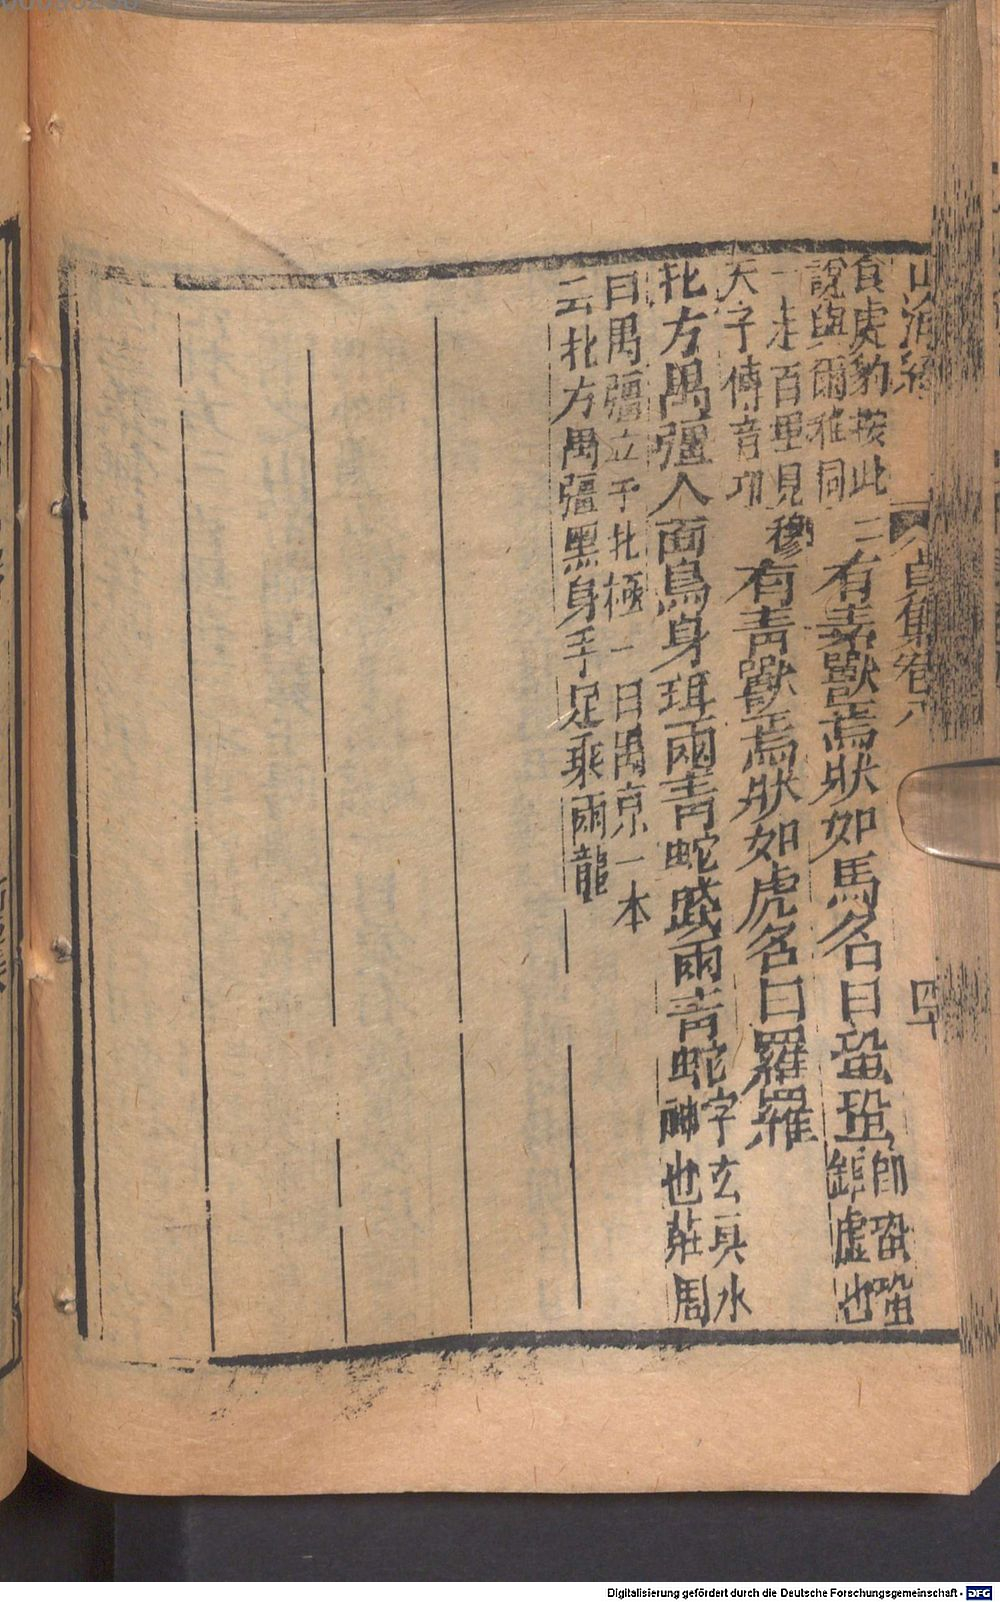 山海經 合集卷八 四
食虎豹按此
說與爾雅同
有素獸焉狀如馬名曰蛩蛩
即蛩蛩
鉅虛也
一走百里見穆
天子傳音邛
有靑獸焉狀如虎名曰羅羅
北方禺彊人面鳥身珥兩靑蛇踐兩靑蛇
字玄冥水
神也莊周
曰禺彊立于北極一曰禺京一本
云北方禺彊黑身手足乘兩龍
Digitalisierung gefördert durch die Deutsche Forschungsgemeinschaft - DFG